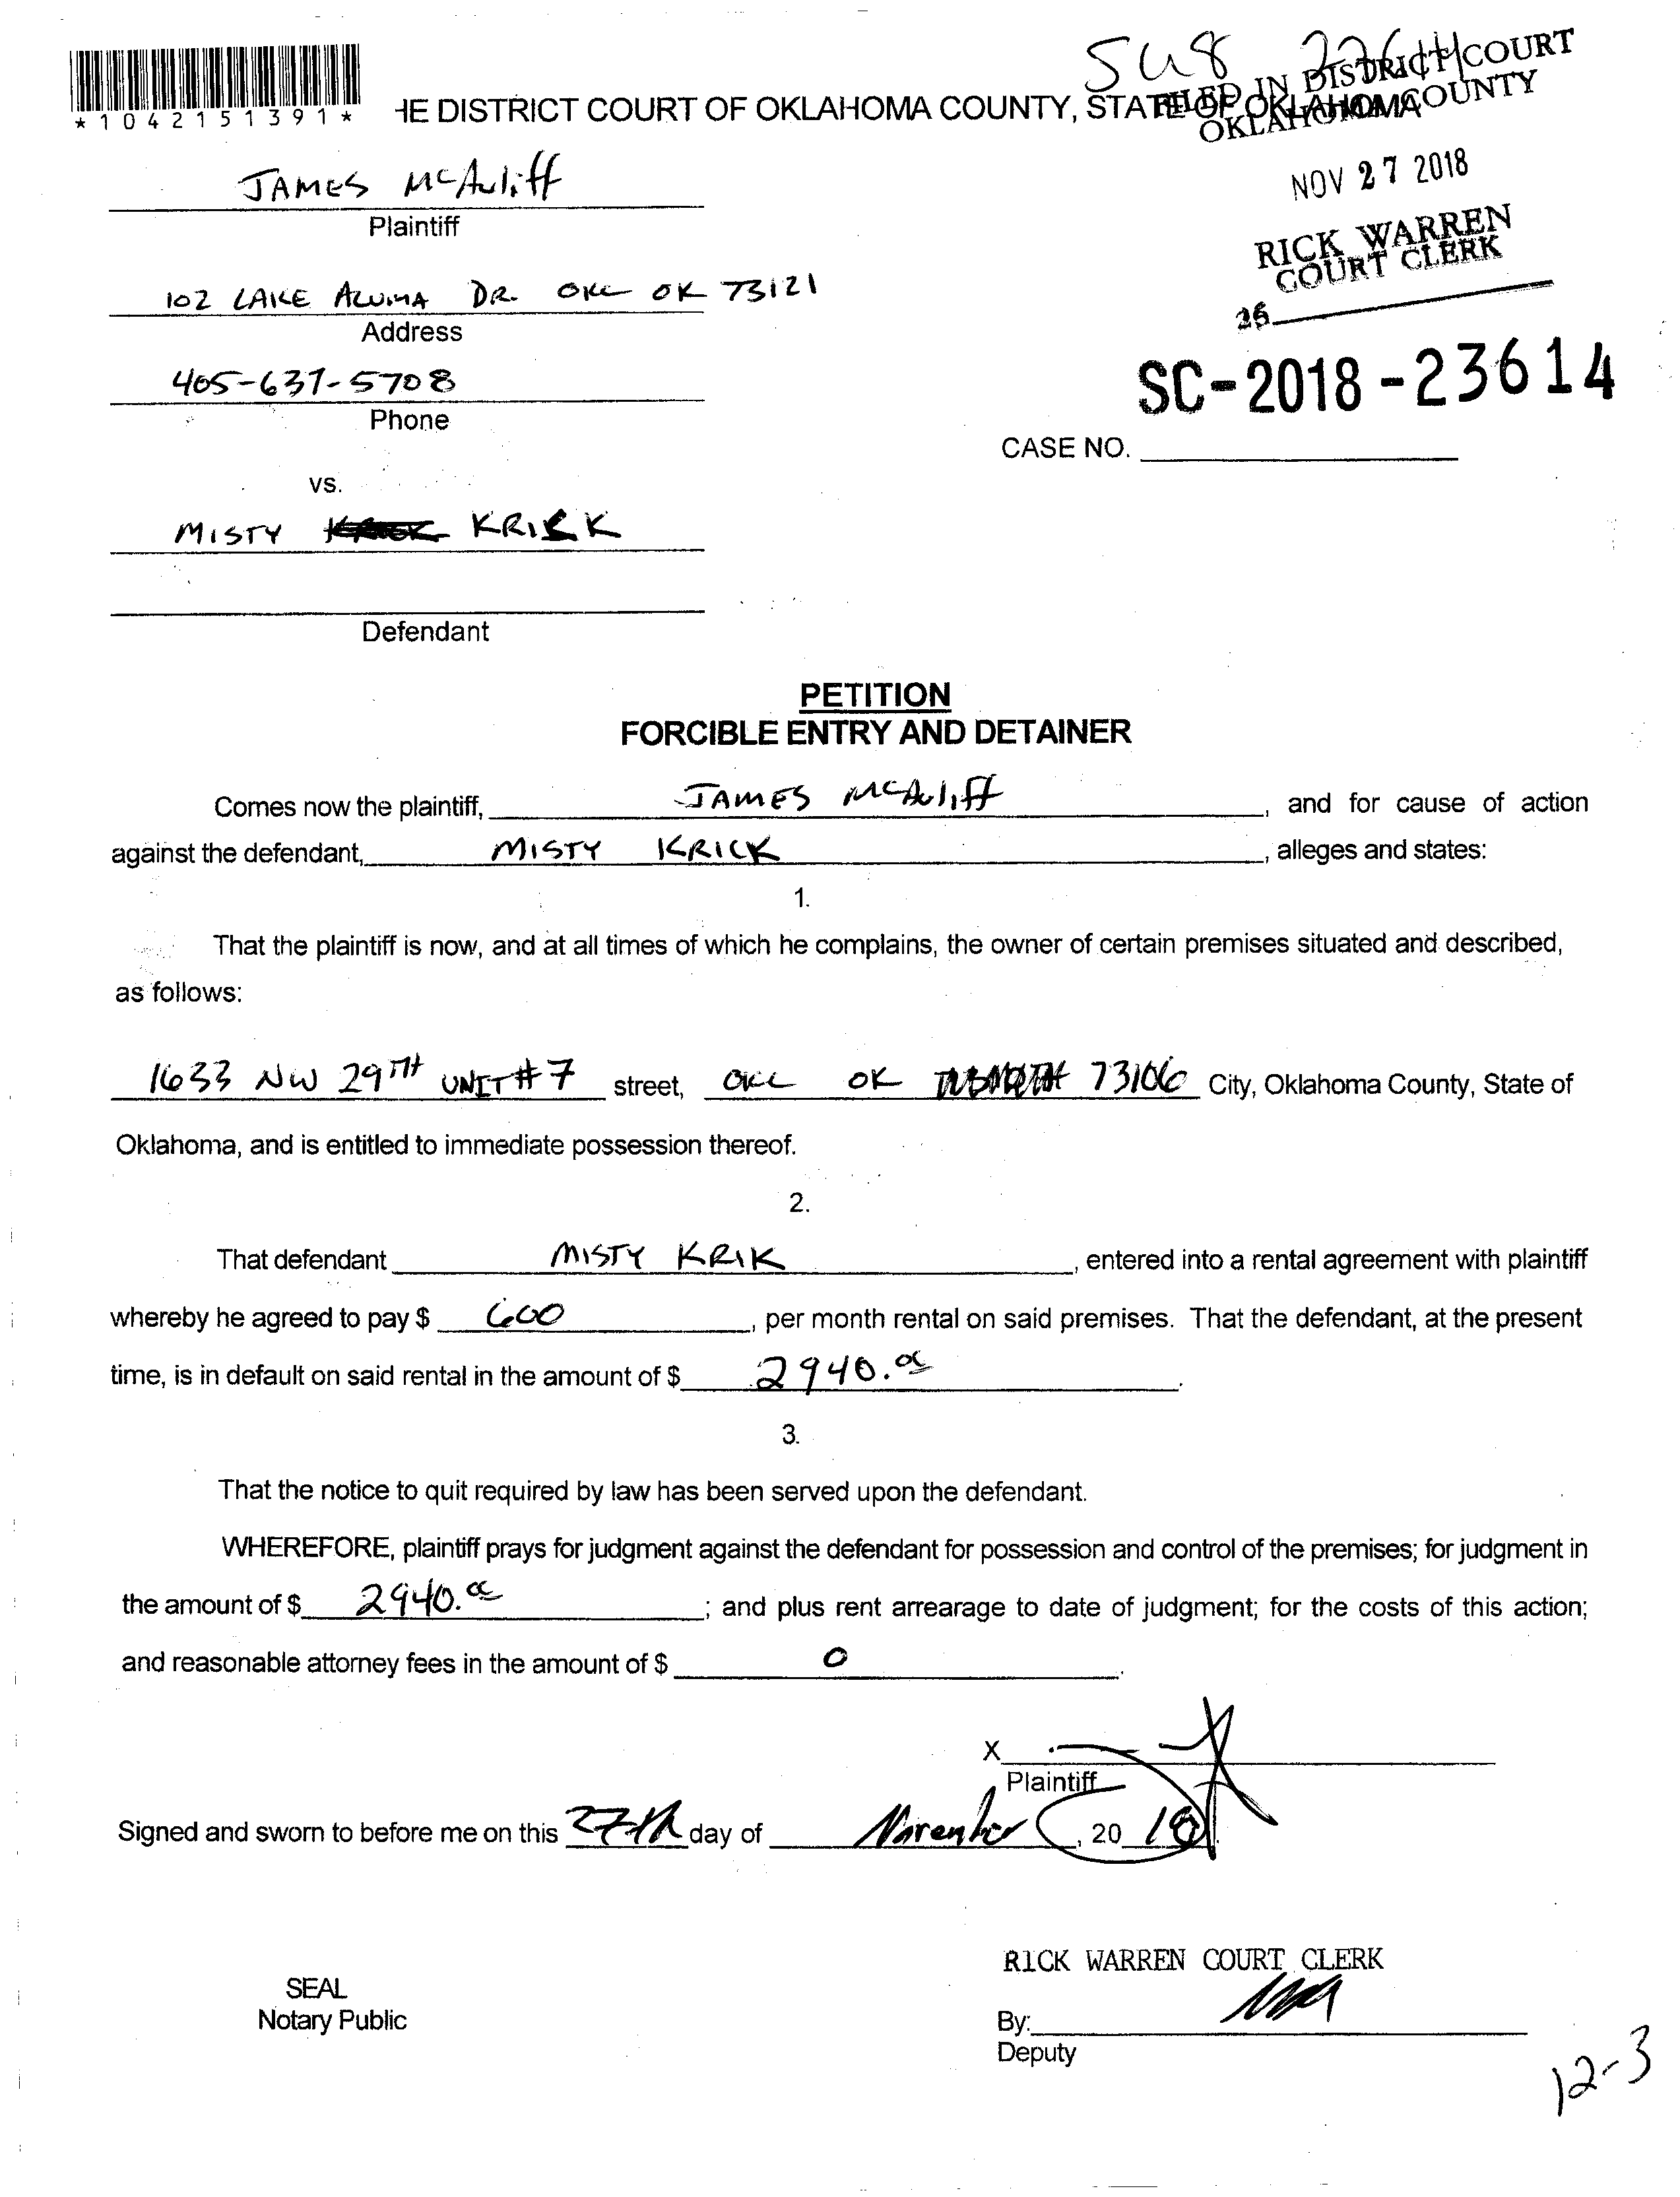 SC8 22614
FILED IN DISTRICT COURT
OKLAHOMA COUNTY
*1042151391*
HE DISTRICT COURT OF OKLAHOMA COUNTY, STATE OF OKLAHOMA
NOV 27 2018
RICK WARREN
COURT CLERK
JAMES McAuliff
Plaintiff
102 LAKE ALUMA DR. OKC OK 73121
Address
405-637-5708
Phone
SC-2018-23614
CASE NO.
vs.
MISTY KRICK
Defendant
PETITION
FORCIBLE ENTRY AND DETAINER
Comes now the plaintiff, JAMES McAuliff, and for cause of action
against the defendant, MISTY KRICK, alleges and states:
1.
That the plaintiff is now, and at all times of which he complains, the owner of certain premises situated and described,
as follows:
1633 NW 29TH UNIT #7 street, OKC OK 73106 City, Oklahoma County, State of
Oklahoma, and is entitled to immediate possession thereof.
2.
That defendant MISTY KRIK, entered into a rental agreement with plaintiff
whereby he agreed to pay $ 600, per month rental on said premises. That the defendant, at the present
time, is in default on said rental in the amount of $ 2940.00.
3.
That the notice to quit required by law has been served upon the defendant.
WHEREFORE, plaintiff prays for judgment against the defendant for possession and control of the premises; for judgment in
the amount of $ 2940.00; and plus rent arrearage to date of judgment; for the costs of this action;
and reasonable attorney fees in the amount of $ 0.
X
Plaintiff
Signed and sworn to before me on this 27th day of November, 20 18.
RICK WARREN COURT CLERK
SEAL
Notary Public
By:
Deputy
12-3